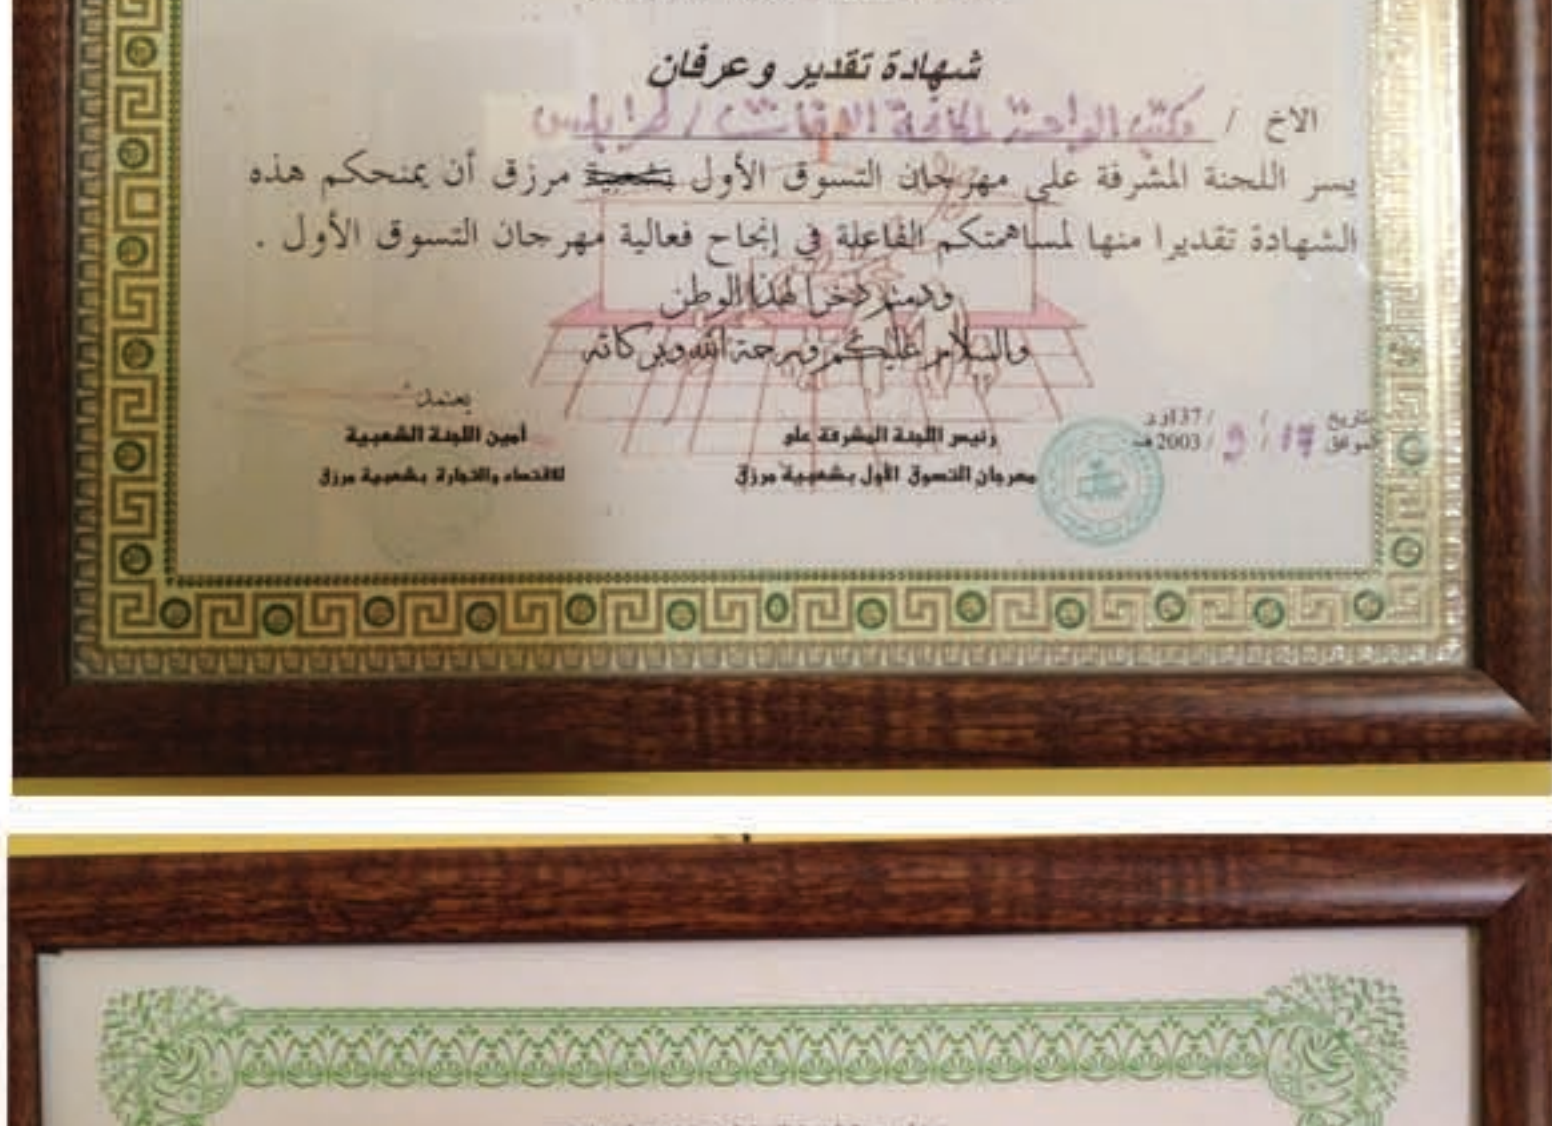 شهادة تقدير وعرفان
الاخ / مكتب الواحة لكافة / طرابلس
يسر اللجنة المشرفة على مهرجان التسوق الأول بشعبية مرزق أن يمنحكم هذه
الشهادة تقديرا منها لمساهمتكم الفاعلة في إنجاح فعالية مهرجان التسوق الأول .
ودمتم ذخرا لهذا الوطن
والسلام عليكم ورحمة الله وبركاته
يعتمد
بتاريخ / / 137و.ر
الموافق 17 / 9 / 2003ف
رئيس اللجنة المشرفة على
مهرجان التسوق الأول بشعبية مرزق
أمين اللجنة الشعبية
للاقتصاد والتجارة بشعبية مرزق